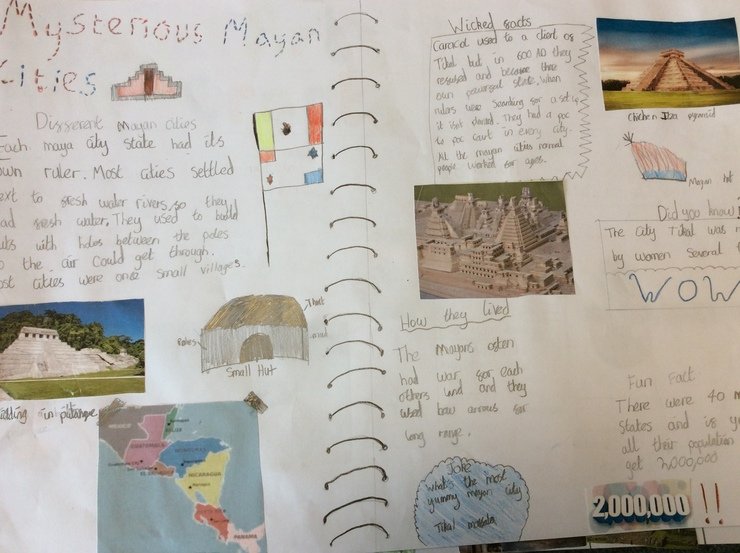 Mysterious Mayan
Cities
Different Mayan cities
Each maya city state had its
own ruler. Most cities settled
next to fresh water rivers, so they
had fresh water. They used to build
huts with holes between the poles
so the air could get through.
Most cities were once small villages.
That
Poles
Small Hut
building in palanque
MEXICO
BELIZE
GUATEMALA
HONDURAS
EL SALVADOR
NICARAGUA
Managua
PANAMA
Wicked facts
Caracol used to a client of
Tikal but in 600 AD they
refused and became there
own powerful state. When
rulers were searching for a set up
it isnt They had a poc
to poc court in every city.
All the mayan cities normal
people worked for ages.
How they lived
The Mayans often
had war for each
others land and they
used bow arrows for
long range.
JOKE
whats the most
yummy mayan city
Tikal masala
Chichen Itza pyramid
Mayan hat
Did you know
The city Tikal was r
by women several t
WOW
Fun Fact
There were 40 m
states and is y
all their population
get 2000,000
2,000,000 !!